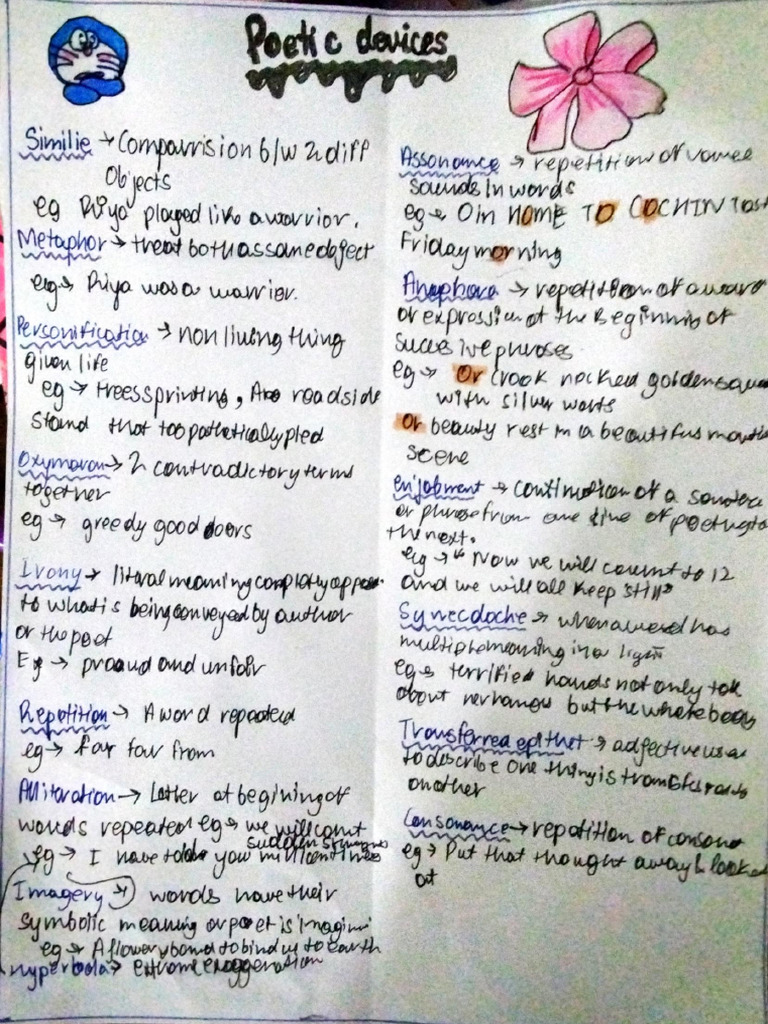 Poetic devices
Similie → Comparrision b/w 2 diff
Objects
eg Riya played like a warrior.
Metaphor → treat both as same object
eg → Riya was a warrior.
Personification → non living thing
given life
eg → trees sprinting, A roadside
stand that too pathetically pled
Oxymoron → 2 contradictory terms
together
eg → greedy good doers
Irony → literal meaning completely
to what is being conveyed by author
or the poet
Eg → proud and unfair
Repitition → A word repeated
eg → far far from
Alliteration → Letter at begining of
words repeated eg → we will count
sudden strangeness
eg → I have told you million times
Imagery → words have their
symbolic meaning or poet is imagini
eg → A flowery band to bind us to earth
Hyperbola → extreme exaggeration
Assonance → repetition of vowel
sounds in words
eg → O in HOME TO COCHIN last
Friday morning
Anaphora → repetition of a word
or expression at the Beginning of
Successive phrases
eg → Or crook necked golden
with silver warts
Or beauty rest in a beautiful
scene
enjabment → continution of a
or phrase from one line of poetry to
the next.
eg → "Now we will count to 12
and we will all keep still"
Synecdoche → when a word has
multiple meaning in a
eg → terrified hands not only talk
about her hands but the whole body
Transferred epithet → adjective used
to describe one thing is transferred to
another
Consonance → repitition of conson
eg → Put that thought away & looked
out